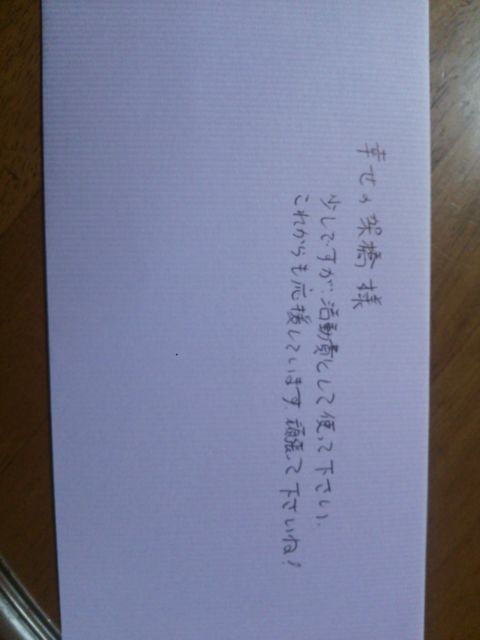 幸せの架橋様
少しですが、活動費として使って下さい、
これからも応援しています、頑張って下さいね!